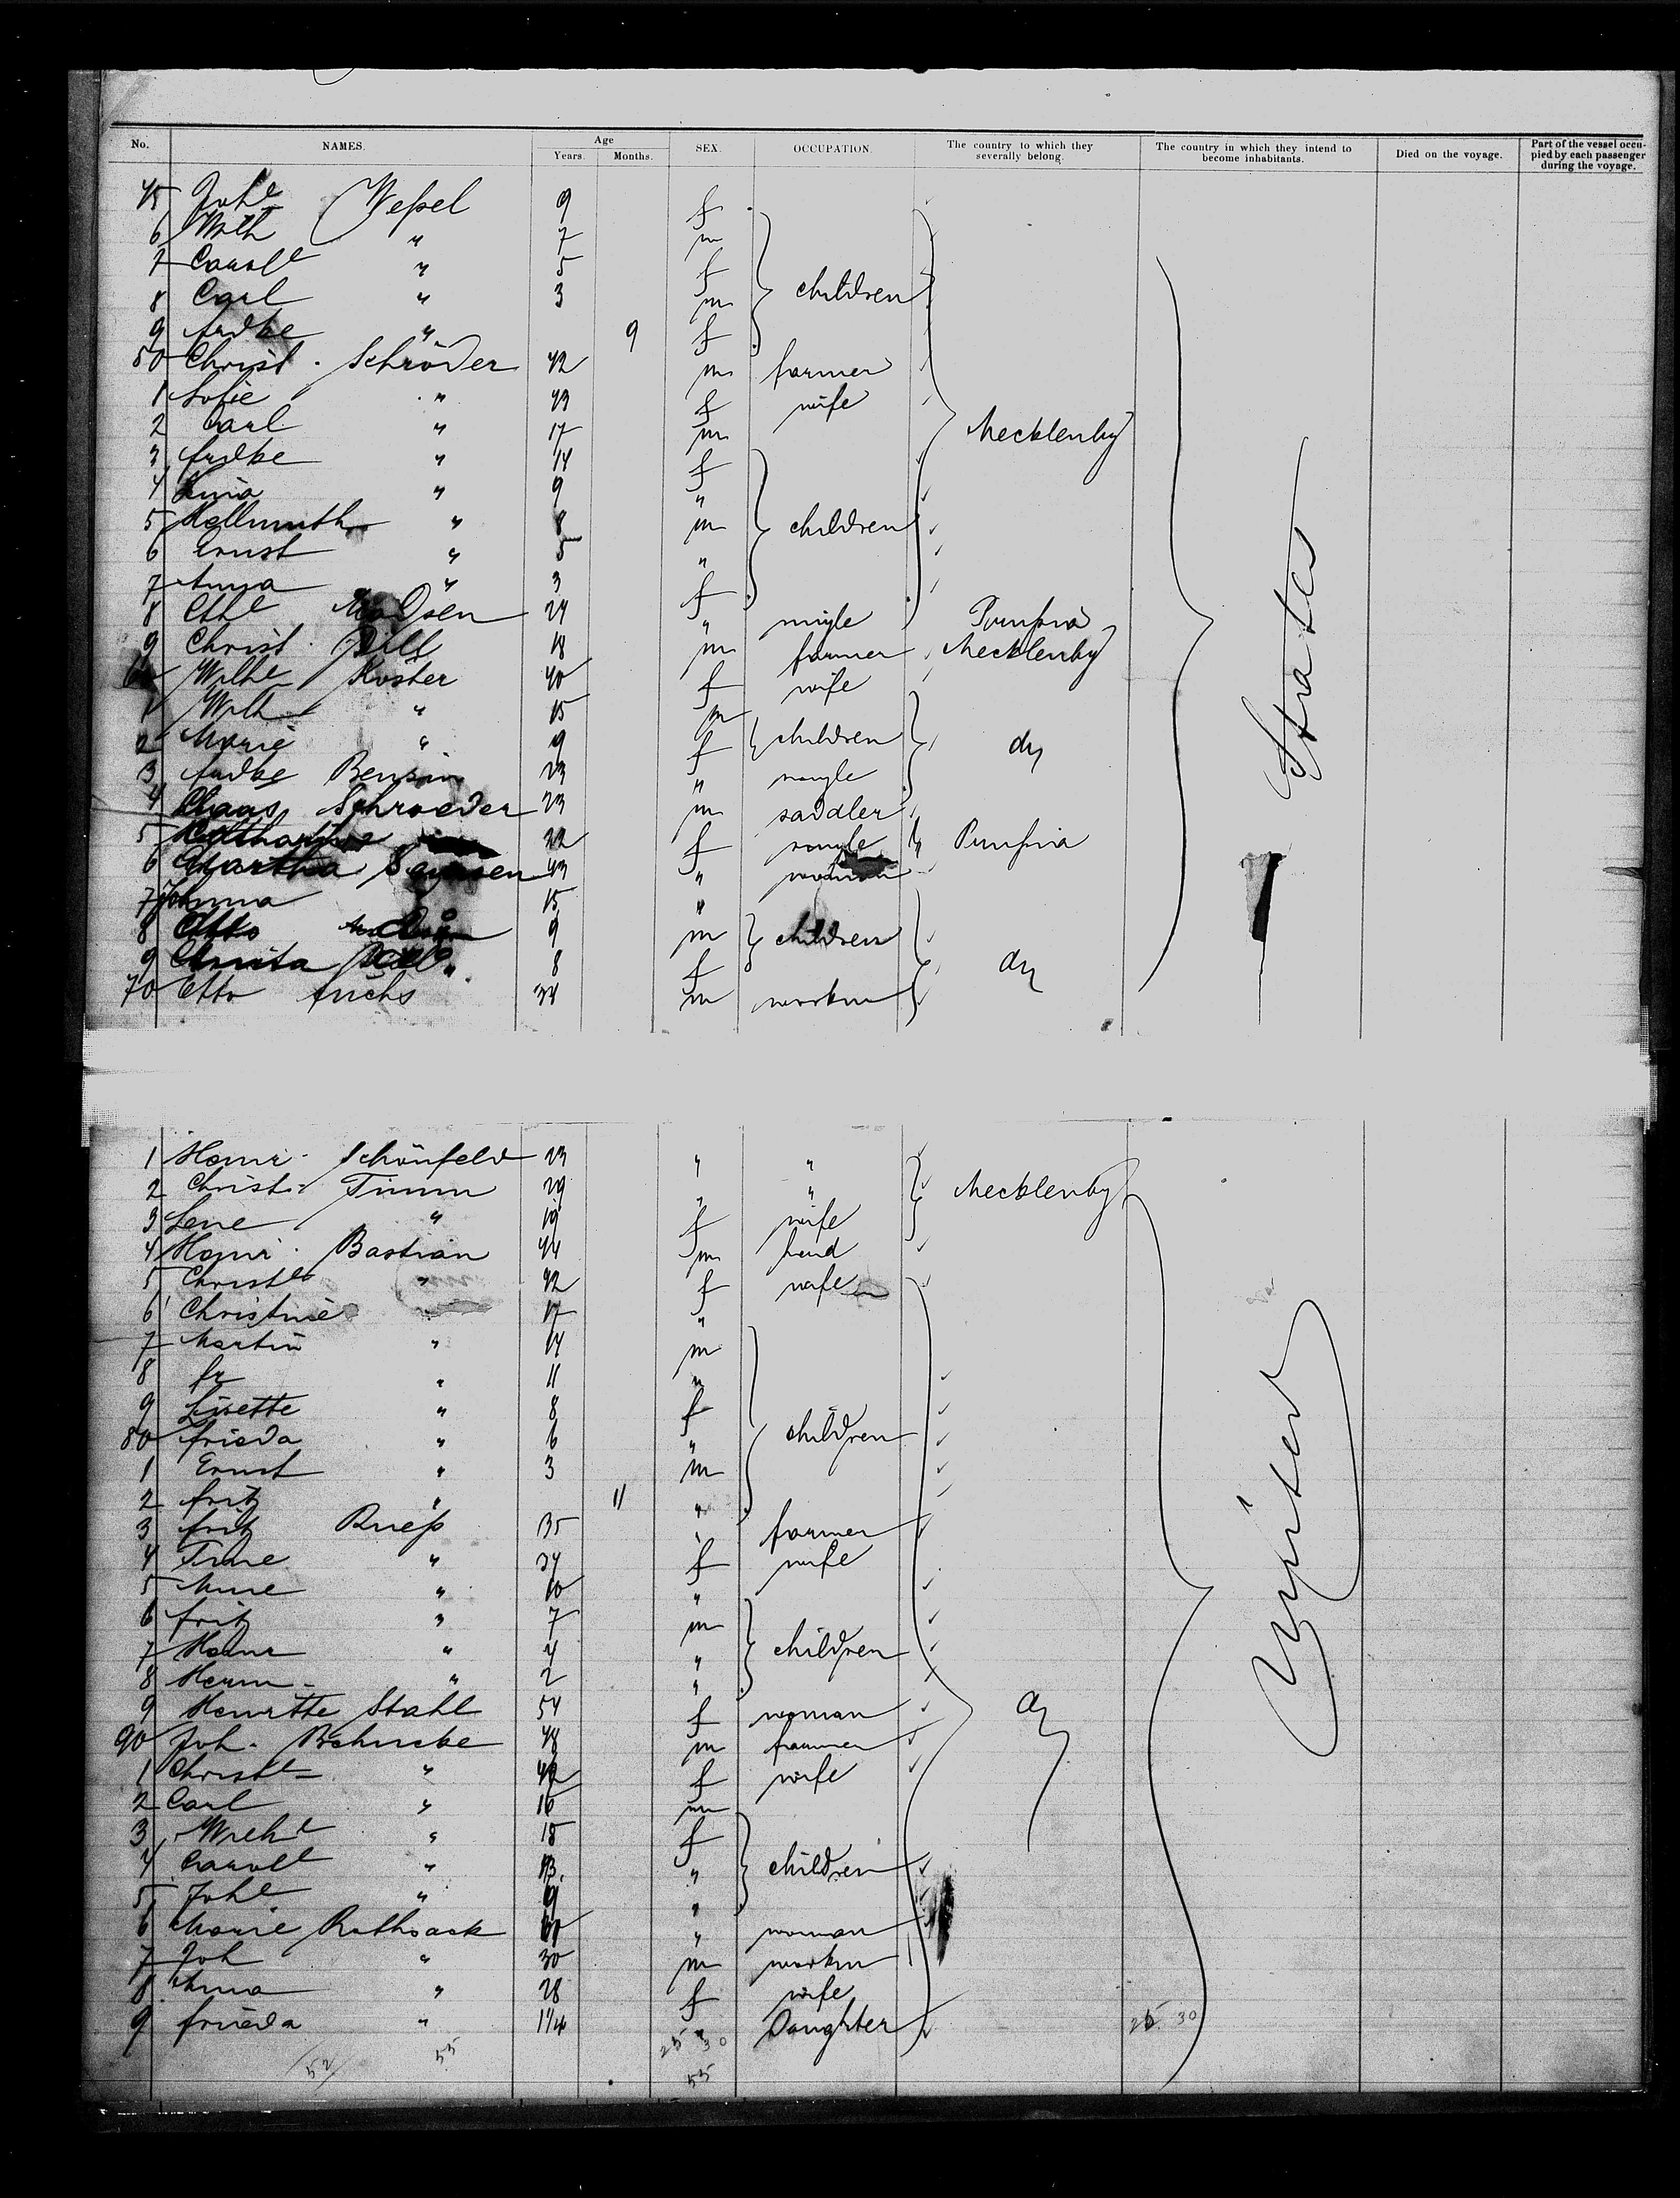 No. NAMES. Age Years. Months. SEX. OCCUPATION. The country to which they severally belong. The country in which they intend to become inhabitants. Died on the voyage. Part of the vessel occupied by each passenger during the voyage.
45 Johe Weßel 9 f
6 Wilh " 7 m
7 Carole " 5 f
8 Carl " 3 m children
9 " 9 f
50 Christ. Schröder 42 m farmer
1 Sofie " 43 f wife
2 Carl " 17 m Mecklenbg
3 " 14 f
4 " 9 "
5 Hellmuth " 8 m children
6 Ernst " 5 "
7 Anna " 3 f
8 Madsen 24 " single
9 Christ. Dill 18 m farmer Mecklenbg
60 Wilhe Köster 40 f wife
1 Wilh " 15 m
2 Marie " 9 f children do
3 23 " single
4 Claas Schroeder 23 m saddler
5 22 f single
6 Martha 43 " woman
7 15 "
8 Otto 9 m children
9 8 f do
70 Otto Fuchs 34 m workm
1 Heinr. Schönfeld 23 " "
2 Christ. Timm 29 " " Mecklenbg
3 Lene " 19 f wife
4 Heinr. Bastian 44 m hand
5 Christe " 42 f wife
6 Christine " 17 "
7 Martin " 14 m
8 Fr " 11 "
9 Lisette " 8 f
80 Frieda " 6 " children
1 Ernst " 3 m
2 Fritz " 11 "
3 Fritz 35 " farmer
4 Trine " 34 f wife
5 " 10 "
6 Fritz " 7 m
7 Heinr " 4 " children
8 Herm. " 2 "
9 Henrtte Stahl 54 f woman do
90 Joh. Behncke 48 m farmer
1 Christe " 42 f wife
2 Carl " 16 m
3 Wilhe " 15 f
4 Carole " 13 " children
5 Johe " 9 "
6 Marie Rathsack " woman
7 Joh " 30 m workm
8 Anna " 28 f wife
9 Frieda " 1 1/4 " Daughter
25 30
25 30
52 55 55
United States